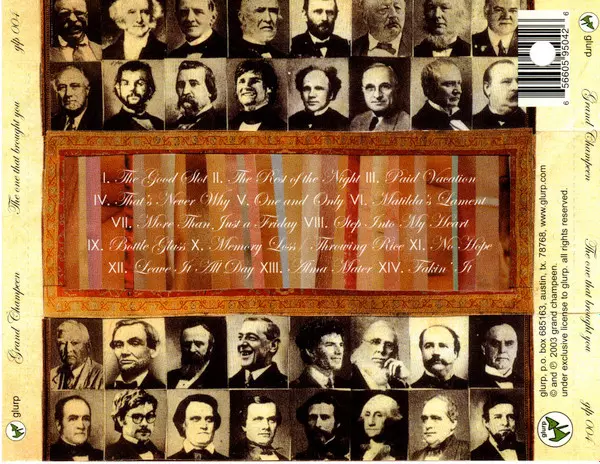 I. The Good Slot II. The Rest of the Night III. Paid Vacation
IV. That's Never Why V. One and Only VI. Matilda's Lament
VII. More Than Just a Friday VIII. Step Into My Heart
IX. Bottle Glass X. Memory Loss / Throwing Rice XI. No Hope
XII. Leave It All Day XIII. Alma Mater XIV. Fakin' It
glurp
Grand Champeen
The one that brought you
glp 004
glurp
Grand Champeen
The one that brought you
glp 004
6 56605 95042 6
glurp, p.o. box 685163, austin, tx. 78768, www.glurp.com
© and ℗ 2003 grand champeen.
under exclusive license to glurp. all rights reserved.
glurp